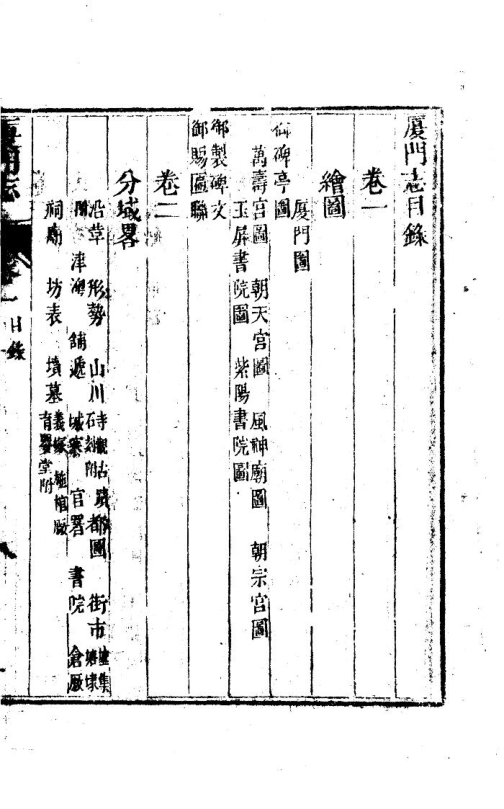 厦門志目錄
卷一
繪圖
厦門圖
御碑亭圖
萬壽宮圖 朝天宮圖 風神廟圖 朝宗宮圖
玉屏書院圖 紫陽書院圖
御製碑文
御賜匾聯
卷二
分域畧
沿革 形勢 山川 寺觀古石刻附 蹟 都圖 街市 墟集
津澳 舖遞 城寨 官署 書院 倉厫
祠廟 坊表 墳墓 義塚 施棺厫 育嬰堂附
厦門志
卷一 目錄